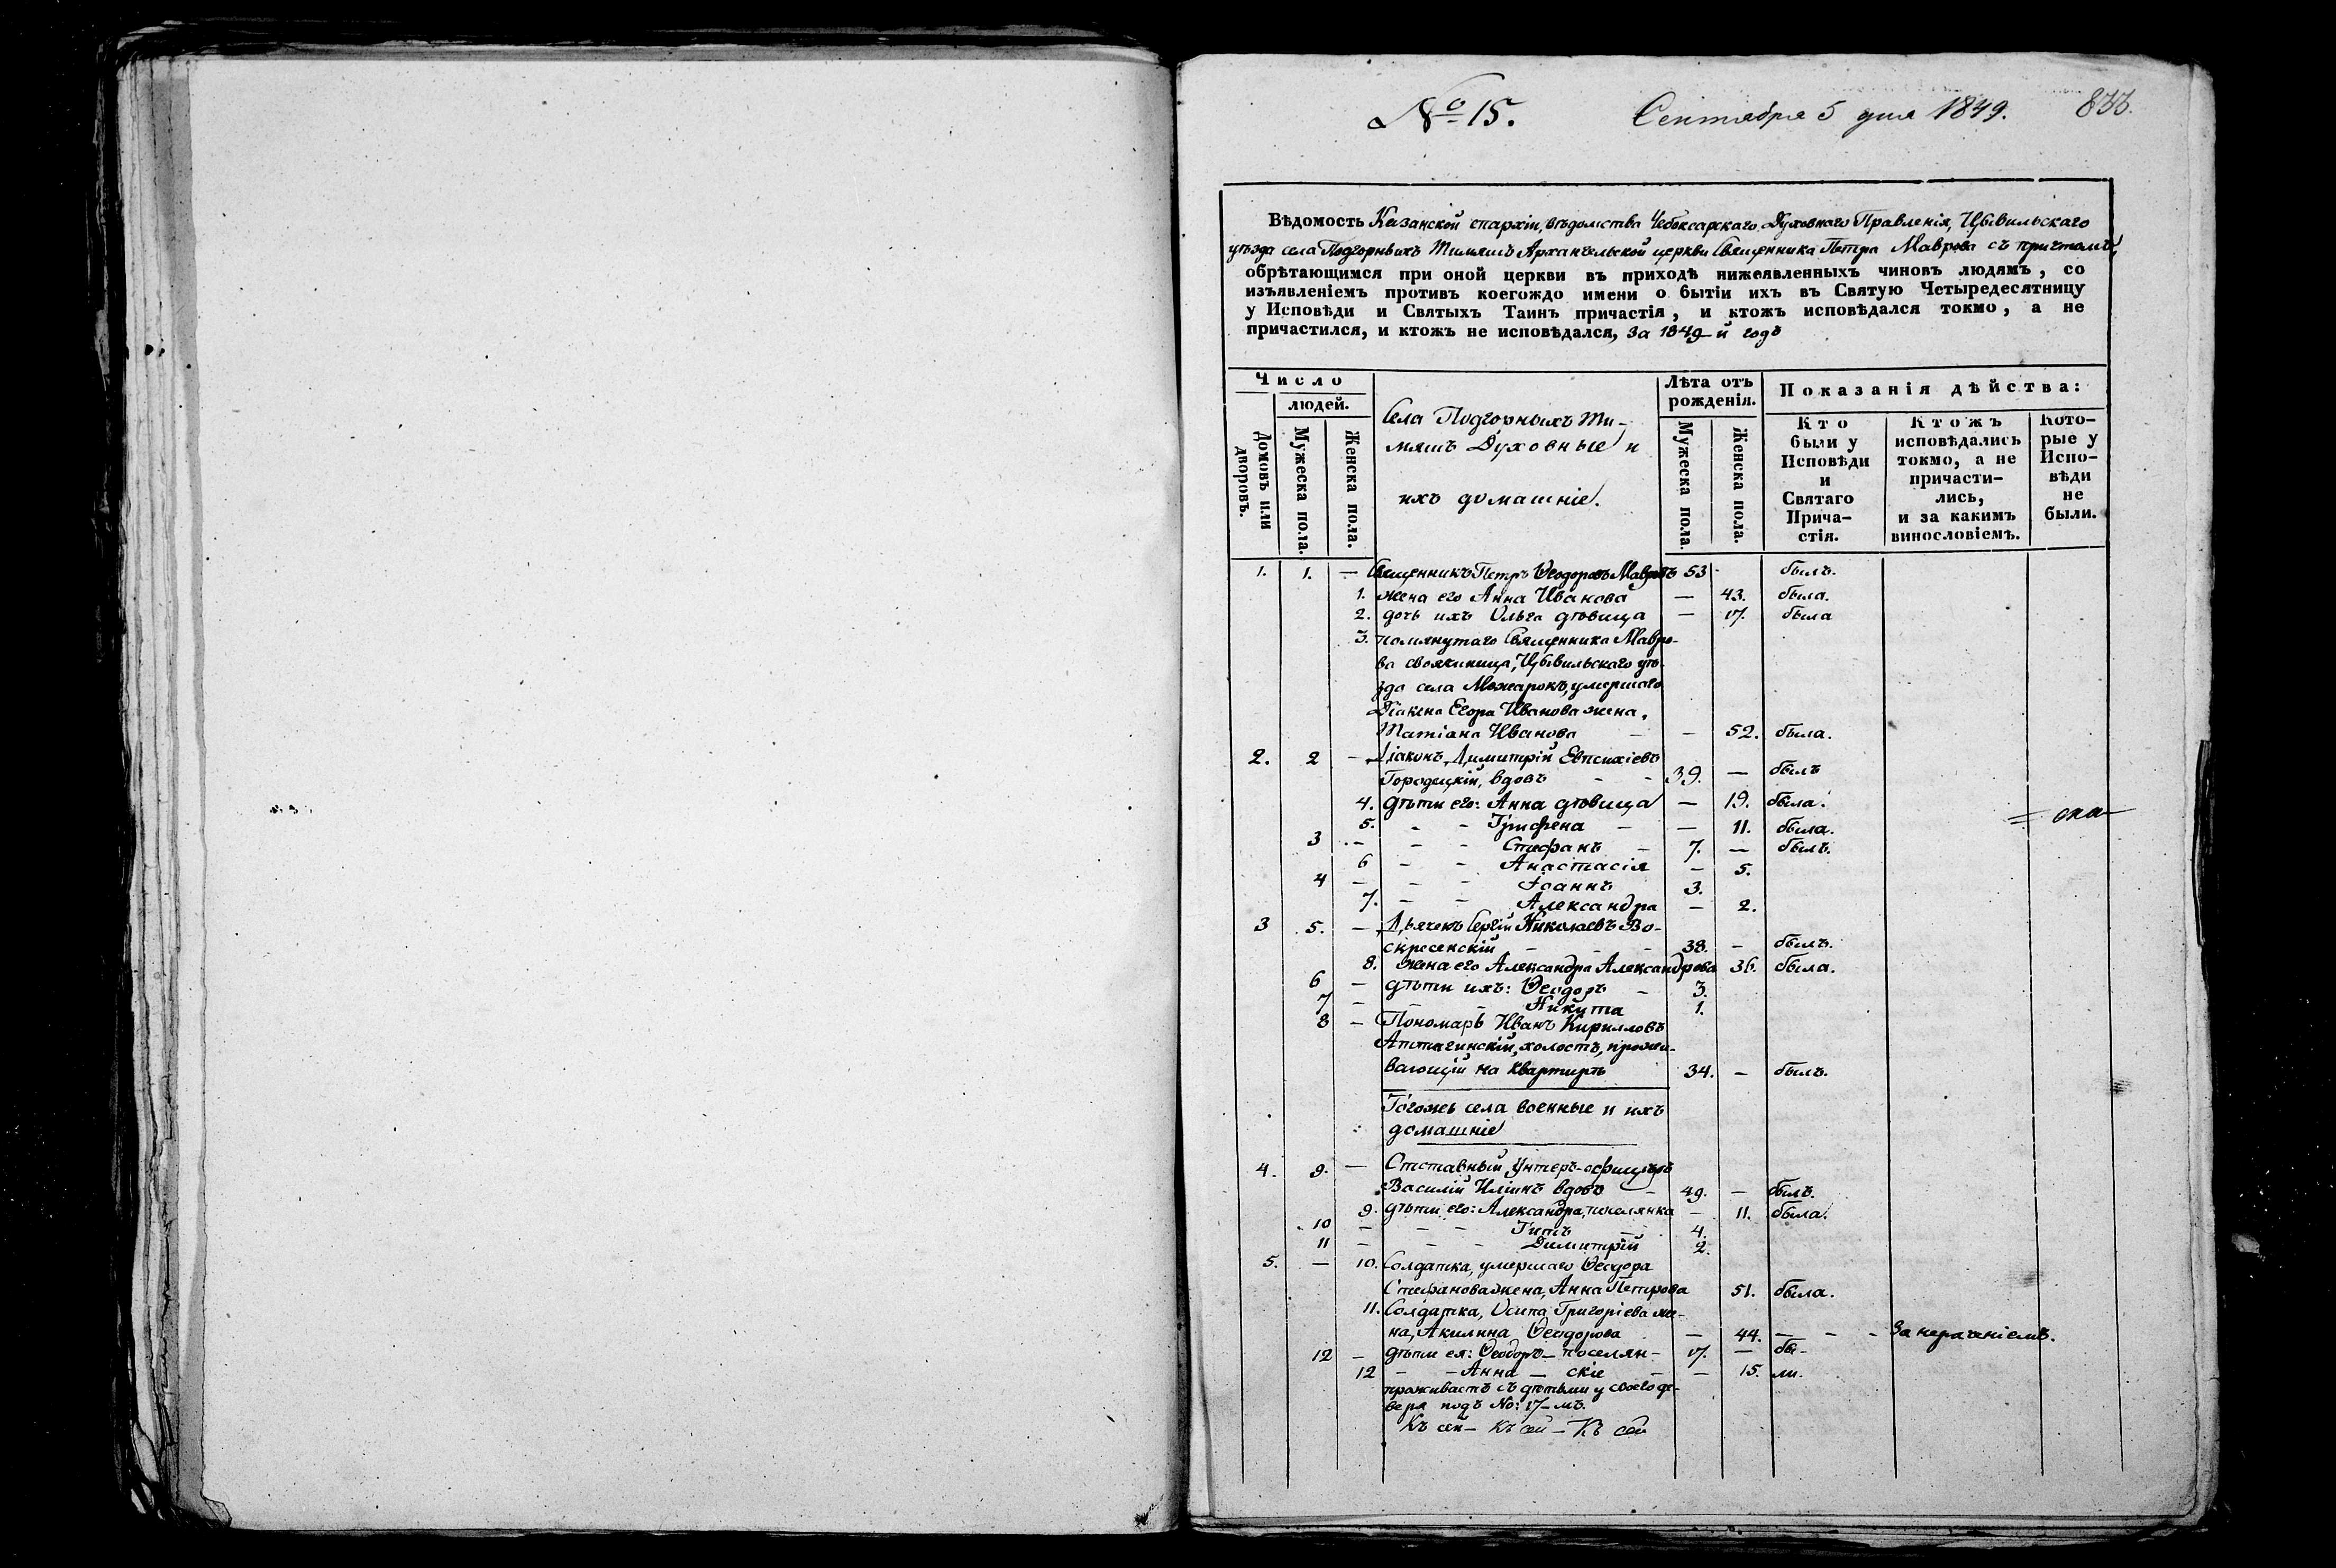 № 15. Сентября 5 дня 1849. 833.
Вѣдомость Казанской епархіи, вѣдомства Чебоксарскаго Духовнаго Правленія, Цывильскаго
уѣзда села Подгорныхъ Тимяшъ Архангельской церкви Священника Петра Маврова съ причтомъ,
обрѣтающимся при оной церкви въ приходѣ нижеявленныхъ чиновъ людямъ, со
изъявленіемъ противъ коегождо имени о бытіи ихъ въ Святую Четыредесятницу
у Исповѣди и Святыхъ Таинъ причастія, и ктожъ исповѣдался токмо, а не
причастился, и ктожъ не исповѣдался, за 1849-й годъ
Число
людей.
Домовъ или дворовъ.
Мужеска пола.
Женска пола.
Села Подгорныхъ Ти-
мяшъ Духовные и
ихъ домашніе.
Лѣта отъ
рожденія.
Мужеска пола.
Женска пола.
Показанія дѣйства:
Кто
были у
Исповѣди
и
Святаго
Прича-
стія.
Ктожъ
исповѣдались
токмо, а не
причасти-
лись,
и за какимъ
винословіемъ.
Кото-
рые у
Испо-
вѣди
не
были.
1. 1. — Священникъ Петръ Ѳеодоровъ Мавровъ 53 - былъ.
1. жена его Анна Иванова — 43. была.
2. дочь ихъ Ольга дѣвица — 17. была
3. помянутаго Священника Мавро-
ва своячиница, Цывильскаго уѣ-
зда села Можарокъ, умершаго
Діакона Егора Иванова жена,
Татіана Иванова — — 52. была.
2. 2 — Діаконъ Димитрій Евпсихіевъ
Городецкій, вдовъ - - 39. — былъ
4. дѣти его: Анна дѣвица — 19. была.
5. - - Грифена — — 11. была.
3 - — - - Стефанъ — 7. — былъ.
6 - - Анастасія — 5.
4 — - - Іоаннъ 3.
7. - - Александра — 2.
3 5. — Дьячекъ Сергій Николаевъ Во-
скресенскій - - - 38. - былъ.
8. жена его Александра Александрова 36. была.
6 — дѣти ихъ: Ѳеодоръ — 3.
7 — - - Никита 1.
8 — Пономарь Иванъ Кирилловъ
холостъ, прожи-
вающій на квартирѣ 34. — былъ.
Тогожъ села военные и ихъ
домашніе
4. 9. — Отставный унтеръ-офицеръ
Василій Ильинъ вдовъ — 49. — былъ.
9. дѣти его: Александра, поселянка — 11. была.
10 — - - Титъ — 4.
11 — - - Димитрій 2.
5. — 10. Солдатка, умершаго Ѳеодора
Стефанова жена, Анна Петрова 51. была.
11. Солдатка, Осипа Григоріева же-
на, Акилина Ѳеодорова — 44. — - - За нераченіемъ.
12 — дѣти ея: Ѳеодоръ — поселян- 17. — бы-
12 - - Анна — скіе - — 15. ли.
проживаетъ съ дѣтьми у своего де-
веря подъ No: 17-мъ.
Къ сей — Къ сей — Къ сей